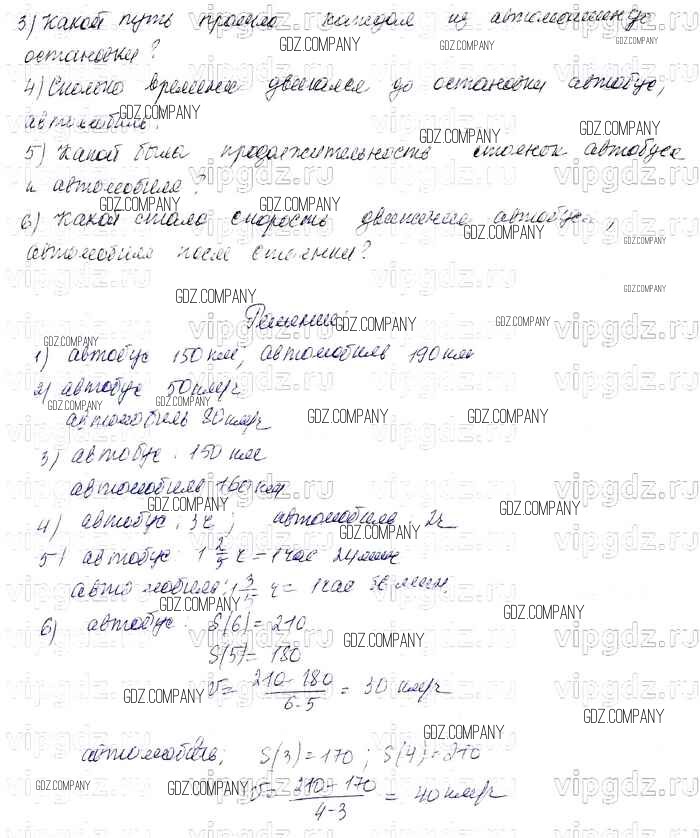 3) Какой путь прошли каждая из автомашин до
остановки?
4) Сколько времени двигался до остановки автобус,
автомобиль?
5) Какой была продолжительность стоянок автобуса
и автомобиля?
6) Какой стала скорость движения автобуса,
автомобиля после стоянки?
Решение:
1) автобус 150 км, автомобиль 190 км
2) автобус 50 км/ч
автомобиль 80 км/ч
3) автобус 150 км
автомобиль 160 км
4) автобус 3ч; автомобиль 2ч
5) автобус 1 2/5 ч = 1 час 24 мин
автомобиль 1 3/5 ч = 1 час 36 мин.
6) автобус S(6) = 210
S(5) = 180
v = (210 - 180)/(6-5) = 30 км/ч
автомобиль; S(3) = 170; S(4) = 210
v = (210 - 170)/(4-3) = 40 км/ч
GDZ.COMPANY
vipgdz.ru